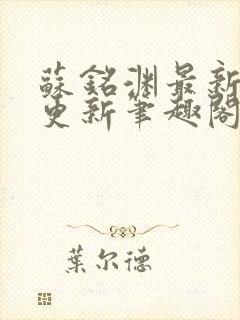 蘇銘淵最新
更新筆趣閣
葉尔德